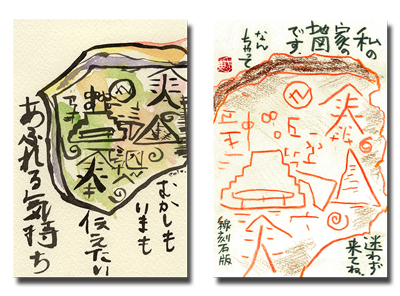 むかしも
いまも
伝えたい
あふれる気持ち
私の
家の
地図
です.
なんちゃって
迷わず
来てね.
線刻石版